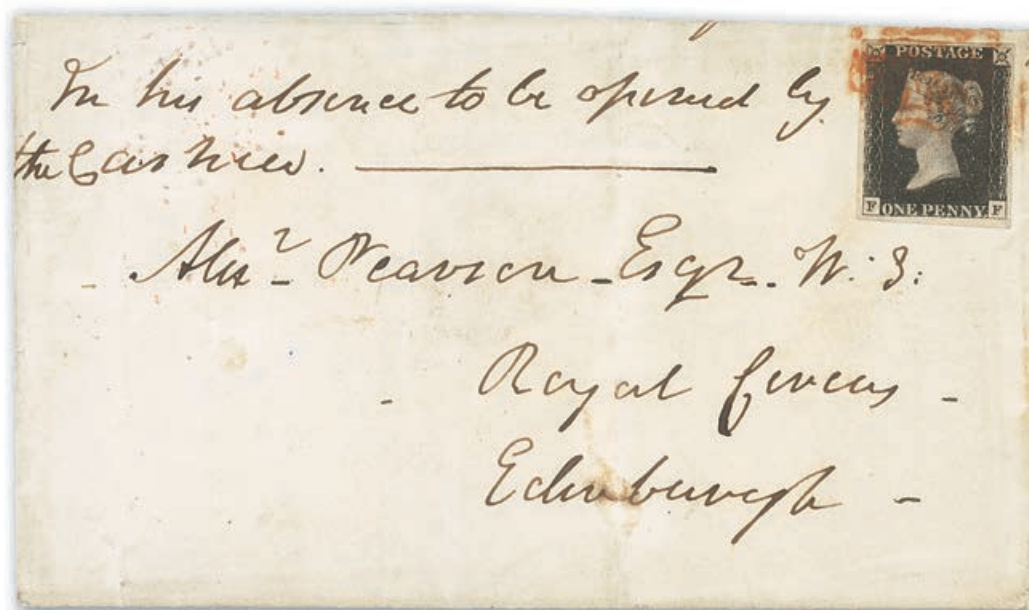 In his absence to be opened by
the Cashier.
Alexr Pearson Esqr W.S.
Royal Circus
Edinburgh
POSTAGE
F ONE PENNY F